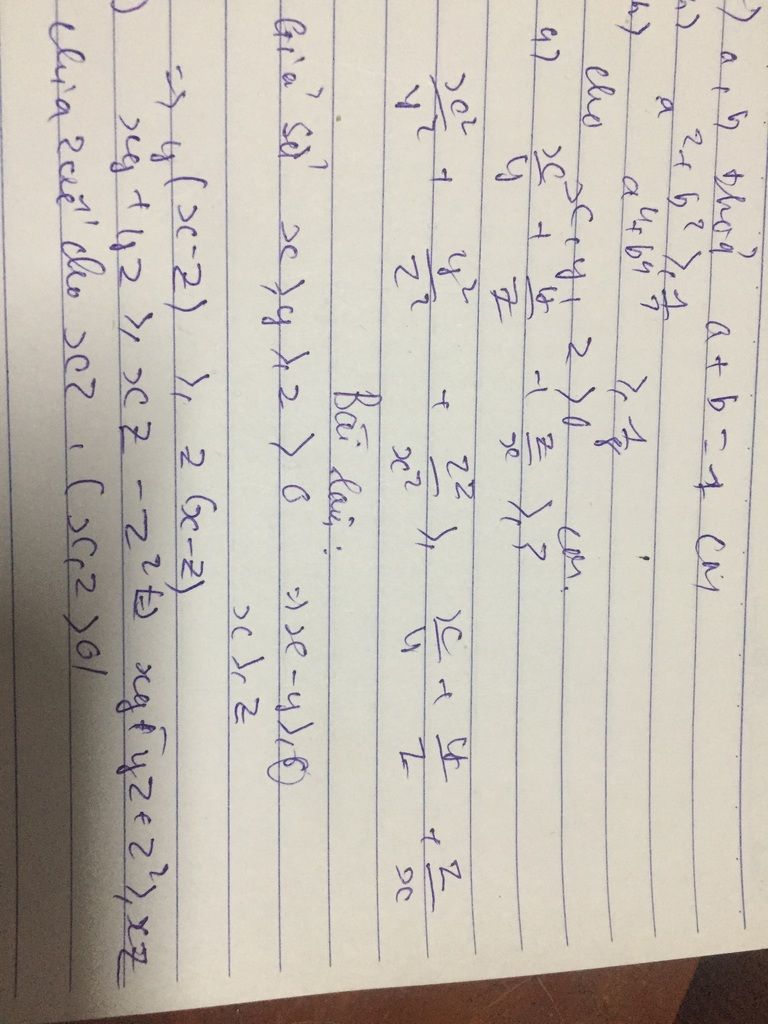 a, b thoả a + b = 1 cm
a² + b² ≥ 1/2
a⁴ + b⁴ ≥ 1/8
cho x, y, z > 0 cm.
a) x/y + y/z + z/x ≥ 3
x²/y² + y²/z² + z²/x² ≥ x/y + y/z + z/x
Bài làm:
Giả sử x ≥ y ≥ z > 0 => x - y ≥ 0
x ≥ z
=> y(x-z) ≥ z(x-z)
xy + yz ≥ xz - z² <=> xy - yz + z² ≥ xz
chia 2 vế cho xz, (x, z > 0)